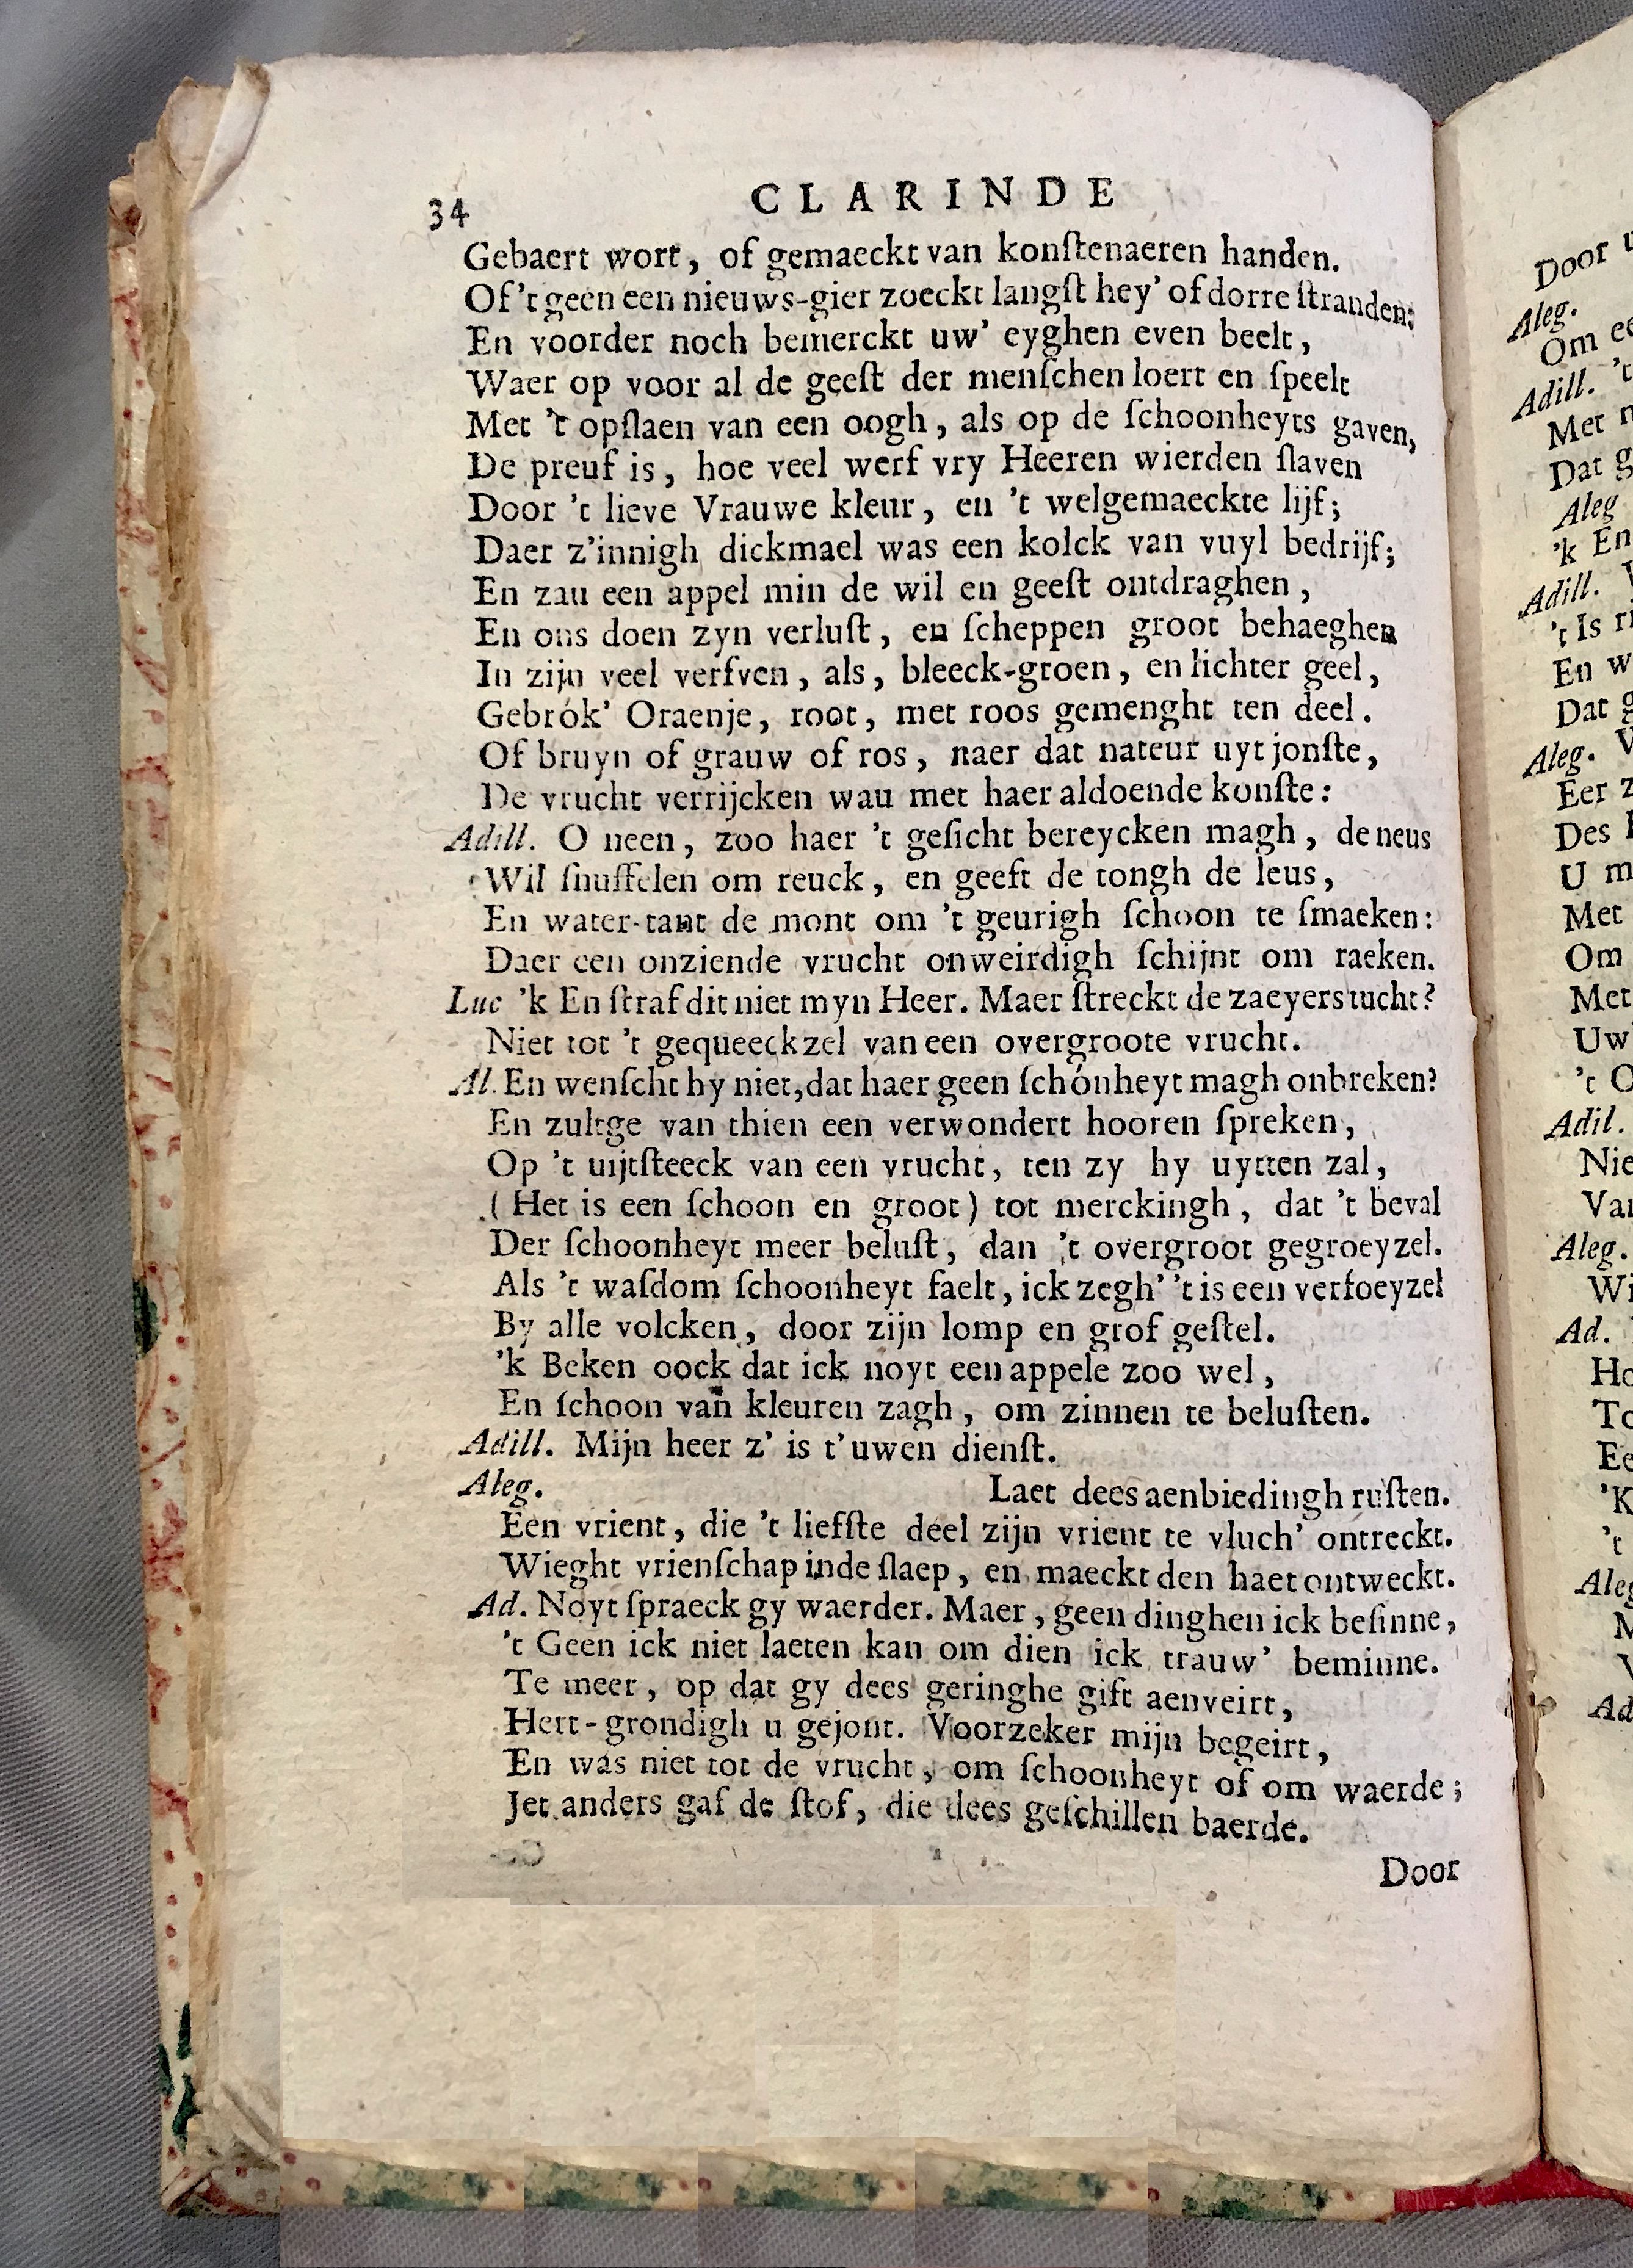 34 CLARINDE
Gebaert wort, of gemaeckt van konſtenaeren handen.
Of 't geen een nieuws-gier zoeckt langſt hey' of dorre ſtranden:
En voorder noch bemerckt uw' eyghen even beelt,
Waer op voor al de geeſt der menſchen loert en ſpeelt
Met 't opſlaen van een oogh, als op de ſchoonheyts gaven,
De preuf is, hoe veel werf vry Heeren wierden ſlaven
Door 't lieve Vrauwe kleur, en 't welgemaeckte lijf;
Daer z'innigh dickmael was een kolck van vuyl bedrijf;
En zau een appel min de wil en geeſt ontdraghen,
En ons doen zyn verluſt, en ſcheppen groot behaeghen
In zijn veel verfven, als, bleeck-groen, en lichter geel,
Gebrók' Oraenje, root, met roos gemenght ten deel.
Of bruyn of grauw of ros, naer dat nateur uyt jonſte,
De vrucht verrijcken wau met haer aldoende konſte:
Adill. O neen, zoo haer 't geſicht bereycken magh, de neus
Wil ſnuffelen om reuck, en geeft de tongh de leus,
En water-tant de mont om 't geurigh ſchoon te ſmaeken:
Daer een onziende vrucht onweirdigh ſchijnt om raeken.
Luc 'k En ſtraf dit niet myn Heer. Maer ſtreckt de zaeyers tucht?
Niet tot 't gequeeckzel van een overgroote vrucht.
Al. En wenſcht hy niet, dat haer geen ſchónheyt magh onbreken?
En zultge van thien een verwondert hooren ſpreken,
Op 't uijtſteeck van een vrucht, ten zy hy uytten zal,
(Het is een ſchoon en groot) tot merckingh, dat 't beval
Der ſchoonheyt meer beluſt, dan 't overgroot gegroeyzel.
Als 't waſdom ſchoonheyt faelt, ick zegh' 't is een verfoeyzel
By alle volcken, door zijn lomp en grof geſtel.
'k Beken oock dat ick noyt een appele zoo wel,
En ſchoon van kleuren zagh, om zinnen te beluſten.
Adill. Mijn heer z' is t'uwen dienſt.
Aleg. Laet dees aenbiedingh ruſten.
Een vrient, die 't liefſte deel zijn vrient te vluch' ontreckt.
Wieght vrienſchap inde ſlaep, en maeckt den haet ontweckt.
Ad. Noyt ſpraeck gy waerder. Maer, geen dinghen ick beſinne,
't Geen ick niet laeten kan om dien ick trauw' beminne.
Te meer, op dat gy dees geringhe gift aenveirt,
Hert-grondigh u gejont. Voorzeker mijn begeirt,
En was niet tot de vrucht, om ſchoonheyt of om waerde;
Jet anders gaf de ſtof, die dees geſchillen baerde.
Door
Door
Aleg.
Om
Adill. 't
Met
Dat
Aleg
'k En
Adill.
't Is
En
Dat
Aleg.
Eer
Des
U
Met
Om
Met
Uw
't
Adil.
Aleg.
Ad.
'K
't